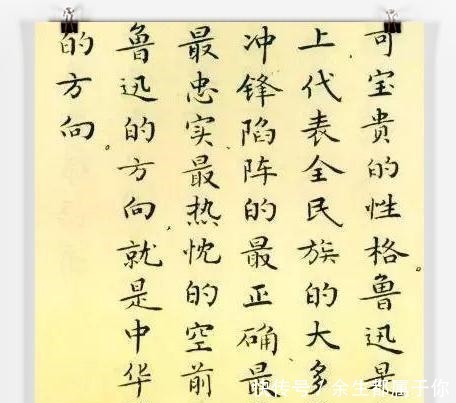 可宝贵的性格。鲁迅是
上代表全民族的大多
冲锋陷阵的最正确最
最忠实最热忱的空前
鲁迅的方向就是中华
的方向。
快传号 / 余生都属于你